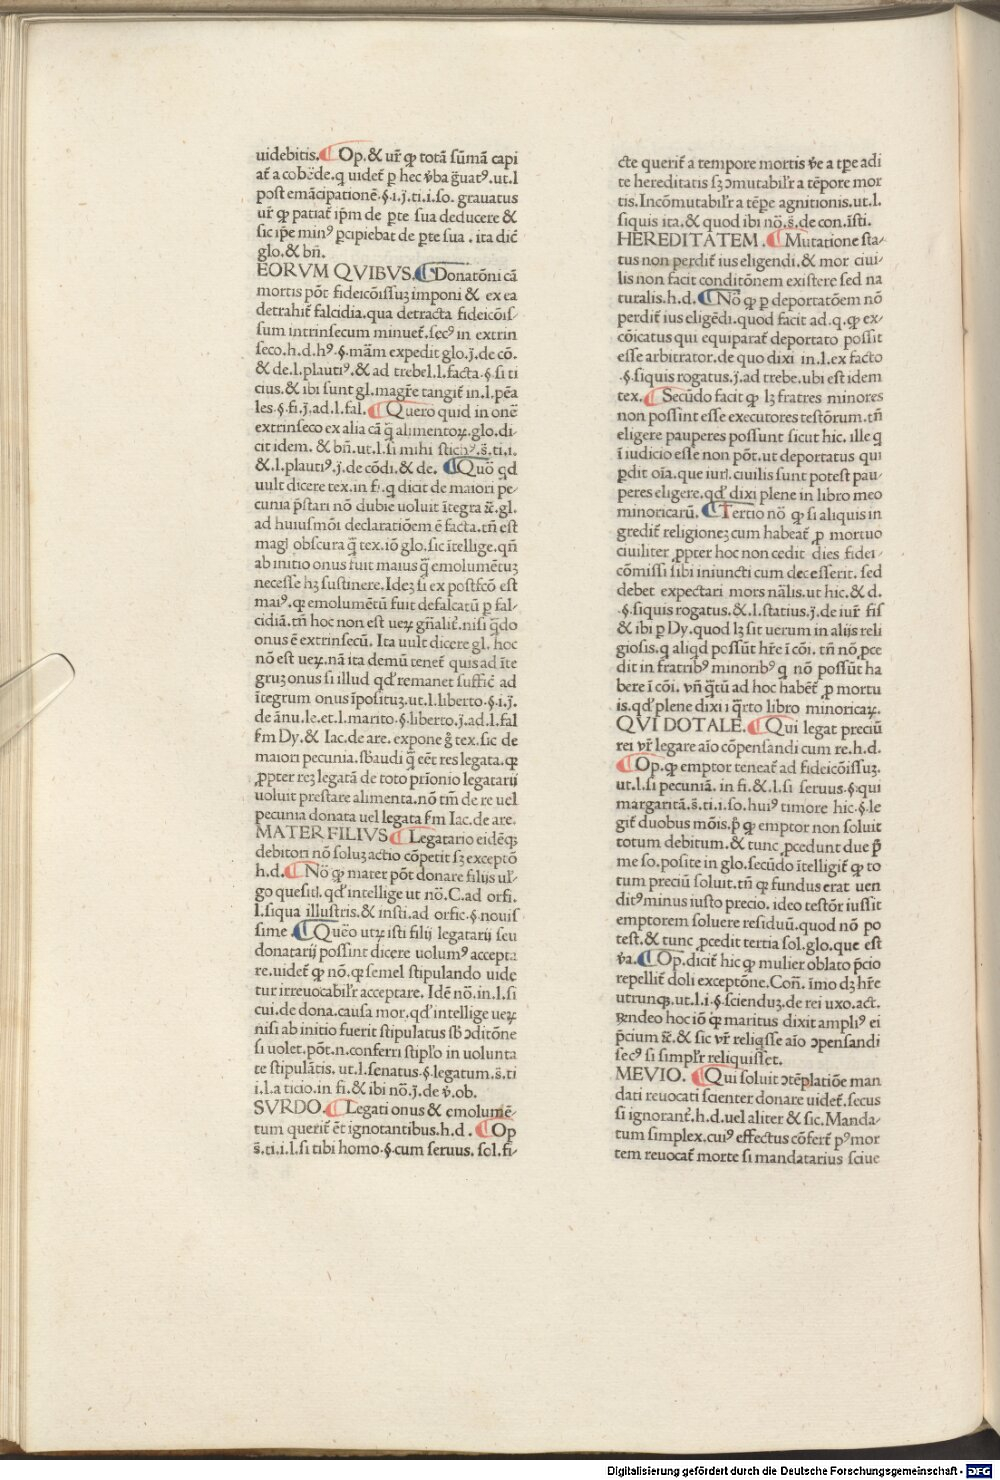 uidebitis. ¶ Op. & ur̄ ꝙ totā sūmā capi
at̄ a cohēde. q̇ uidet̄ ꝑ hec v̄ba ḡuatꝰ. ut. l
post emācipationē. §. i. j̄. ti. i. so. grauatus
ur̄ ꝙ patiat̄ ip̄m de ꝑte sua deducere &
sic ip̄e minꝰ ꝑcipiebat de ꝑte sua . ita dic̄
glo. & bn̄.
EORVM QVIBVS. ¶ Donatōni cā
mortis pōt fideicōissuꝫ imponi & ex ea
detrahit̄ falcidia. qua detracta fideicōis⸗
sum intrinsecum minuet̄. secꝰ in extrin
seco. h. d. hꝰ. §. mām expedit glo. j̄. de cō.
& de. l. plautiꝰ. & ad trebel. l. facta. §. si ti
cius. & ibi sunt gl. magr̄e tangit̄ in. l. pēa
les. §. fi. j̄. ad. l. fal. ¶ Quero quid in onē
extrinseco ex alia cā q̄̄ alimentoꝝ. glo. di⸗
cit idem. & bn̄. ut. l. si mihi stichꝰ. s̄. ti. i.
&. l. plautiꝰ. j̄. de cōdi. & de. ¶ Quō qd
uult dicere tex. in fi. q̇ dicit de maiori pe⸗
cunia p̄stari nō dubie uoluit ītegra &̄. gl.
ad huiusmōi declaratiōem ē facta. tn̄ est
magl obscura q̄̄ tex. iō glo. sic ītellige. qn̄
ab initio onus fuit maius q̄̄ emolumētuꝫ
necesse hꝫ sustinere. Ideꝫ si ex postfcō est
maiꝰ. qꝫ emolumētū fuit defalcatū ꝑ fal⸗
cidiā. tn̄ hoc non est ueꝝ gn̄alit̄. nisi q̄̄do
onus ē extrinsecū. Ita uult dicere gl. hoc
nō est ueꝝ. nā ita demū tenet̄ quis ad īte
gruꝫ onus si illud qd̕ remanet suffic̄ ad
ītegrum onus īposituꝫ. ut. l. liberto. §. i. j̄.
de ānu. le. et. l. marito. §. liberto. j̄. ad. l. fal
fm Dy. & Iac. de are. expone g̊ tex. sic de
maiori pecunia. sb̄audi q̄̄ eēt res legata. qꝫ
ꝓpter reꝫ legatā de toto pr̄ionio legatarij
uoluit prestare alimenta. nō tm̄ de re uel
pecunia donata uel legata fm Iac. de are.
MATER FILIVS ¶ Legatario eidēqꝫ
debitori nō soluꝫ actio cōpetit sꝫ exceptō
h. d. ¶ Nō ꝙ mater pōt donare filijs ul̕⸗
go quesitl. qd̕ intellige ut nō. C. ad orfi.
l. siqua illustris. & insti. ad orfic. §. nouis
sime . ¶ Quēo utꝝ isti filij legatarij seu
donatarij possint dicere uolumꝰ accepta
re. uidet̄ ꝙ nō. qꝫ semel stipulando uide
tur irreuocabil̕r acceptare. Idē nō. in. l. si
cui. de dona. causa mor. qd̕ intellige ueꝝ
nisi ab initio fuerit stipulatus sb̄ ↄditōne
si uolet. pōt. n. conferri stip̄lo in uolunta
te stipulātis. ut. l. senatus. §. legatum. s̄. ti
i. l. a ticio. in fi. & ibi nō. j̄. de v̄. ob.
SVRDO. ¶ Legati onus & emolumē⸗
tum querit̄ ēt ignotantibus. h. d . ¶ Op
s̄. ti. i. l. si tibi homo. §. cum seruus. sol. fi⸗
cte querit̄ a tempore mortis v̄e a tp̄e adi
te hereditatis sꝫ ↄmutabil̕r a tēpore mor
tis. Incōmutabil̕r a tēpe agnitionis. ut. l.
siquis ita. & quod ibi nō. s̄. de con. īsti.
HEREDITATEM . ¶ Mutatione sta⸗
tus non perdit̄ ius eligendi. & mor ciui⸗
lis non facit conditōnem existere sed na
turalis. h. d. ¶ Nō ꝙ ꝑ deportatōem nō
perdit̄ ius eligēdi. quod facit ad. q. ꝙ ex⸗
cōicatus qui equiparat̄ deportato possit
esse arbitrator. de quo dixi in. l. ex facto
. §. siquis rogatus. j̄. ad trebe. ubi est idem
tex. ¶ Secūdo facit ꝙ lꝫ fratres minores
non possint esse executores testōrum. tn̄
eligere pauperes possunt sicut hic. ille q̇
ī iudicio esse non pōt. ut deportatus qui
ꝑdit oīa. que iurl. ciuilis sunt potest pau⸗
peres eligere. qd̕ dixi plene in libro meo
minoricarū. ¶ Tertio nō ꝙ si aliquis in
gredit̄ religioneꝫ cum habeat̄ ꝓ mortuo
ciuiliter ꝓpter hoc non cedit dies fidei⸗
cōmissi sibi iniuncti cum decesserit. sed
debet expectari mors nālis. ut hic. & d.
. §. siquis rogatus. &. l. statius. j̄. de iur̄ fis
& ibi ꝑ Dy. quod lꝫ sit uerum in alijs reli
giosis. q̇ aliqd possūt hr̄e ī cōi. tn̄ nō ꝓce
dit in fratribꝰ minoribꝰ q̇ nō possūt ha
bere ī cōi. vn̄ q̄̄tū ad hoc habēt̄ ꝓ mortu
is. qd̕ plene dixi i q̄rto libro minoricaꝝ.
QVI DOTALE. ¶ Qui legat preciū
rei vr̄ legare aīo cōpensandi cum re. h. d.
¶ Op. ꝙ emptor teneat̄ ad fideicōissuꝫ.
ut. l. si pecuniā. in fi. &. l. si seruus. §. qui
margaritā. s̄. ti. i. so. huiꝰ timore hic. §. le
git̄ duobus mōis. p̊ ꝙ emptor non soluit
totum debitum. & tunc ꝓcedunt due p̄
me so. posite in glo. secūdo ītelligit̄ ꝙ to
tum preciū soluit. tn̄ qꝫ fundus erat uen
ditꝰ minus iusto precio. ideo testōr iussit
emptorem soluere residuū. quod nō po
test. & tunc ꝓcedit tertia sol. glo. que est
v̄a. ¶ Op. dicit̄ hic ꝙ mulier oblato p̄cio
repellit̄ doli exceptōne. Con̄. īmo dꝫ hr̄e
utrunqꝫ. ut. l. i. §. scienduꝫ. de rei uxo. act.
Rn̄deo hoc iō q̇ꝫ maritus dixit ampliꝰ ei
p̄cium &̄. & sic vr̄ reliq̇sse aīo ↄpensandi
secꝰ si simpl̕r reliquisset.
MEVIO. ¶ Qui soluit ↄtēplatiōe man
dati reuocati scienter donare uidet̄. secus
si ignorant̄. h. d. uel aliter & sic. Manda⸗
tum simplex. cuiꝰ effectus cōfert̄ pꝰ mor
tem reuocat̄ morte si mandatarius sciue
Digitalisierung gefördert durch die Deutsche Forschungsgemeinschaft - DFG